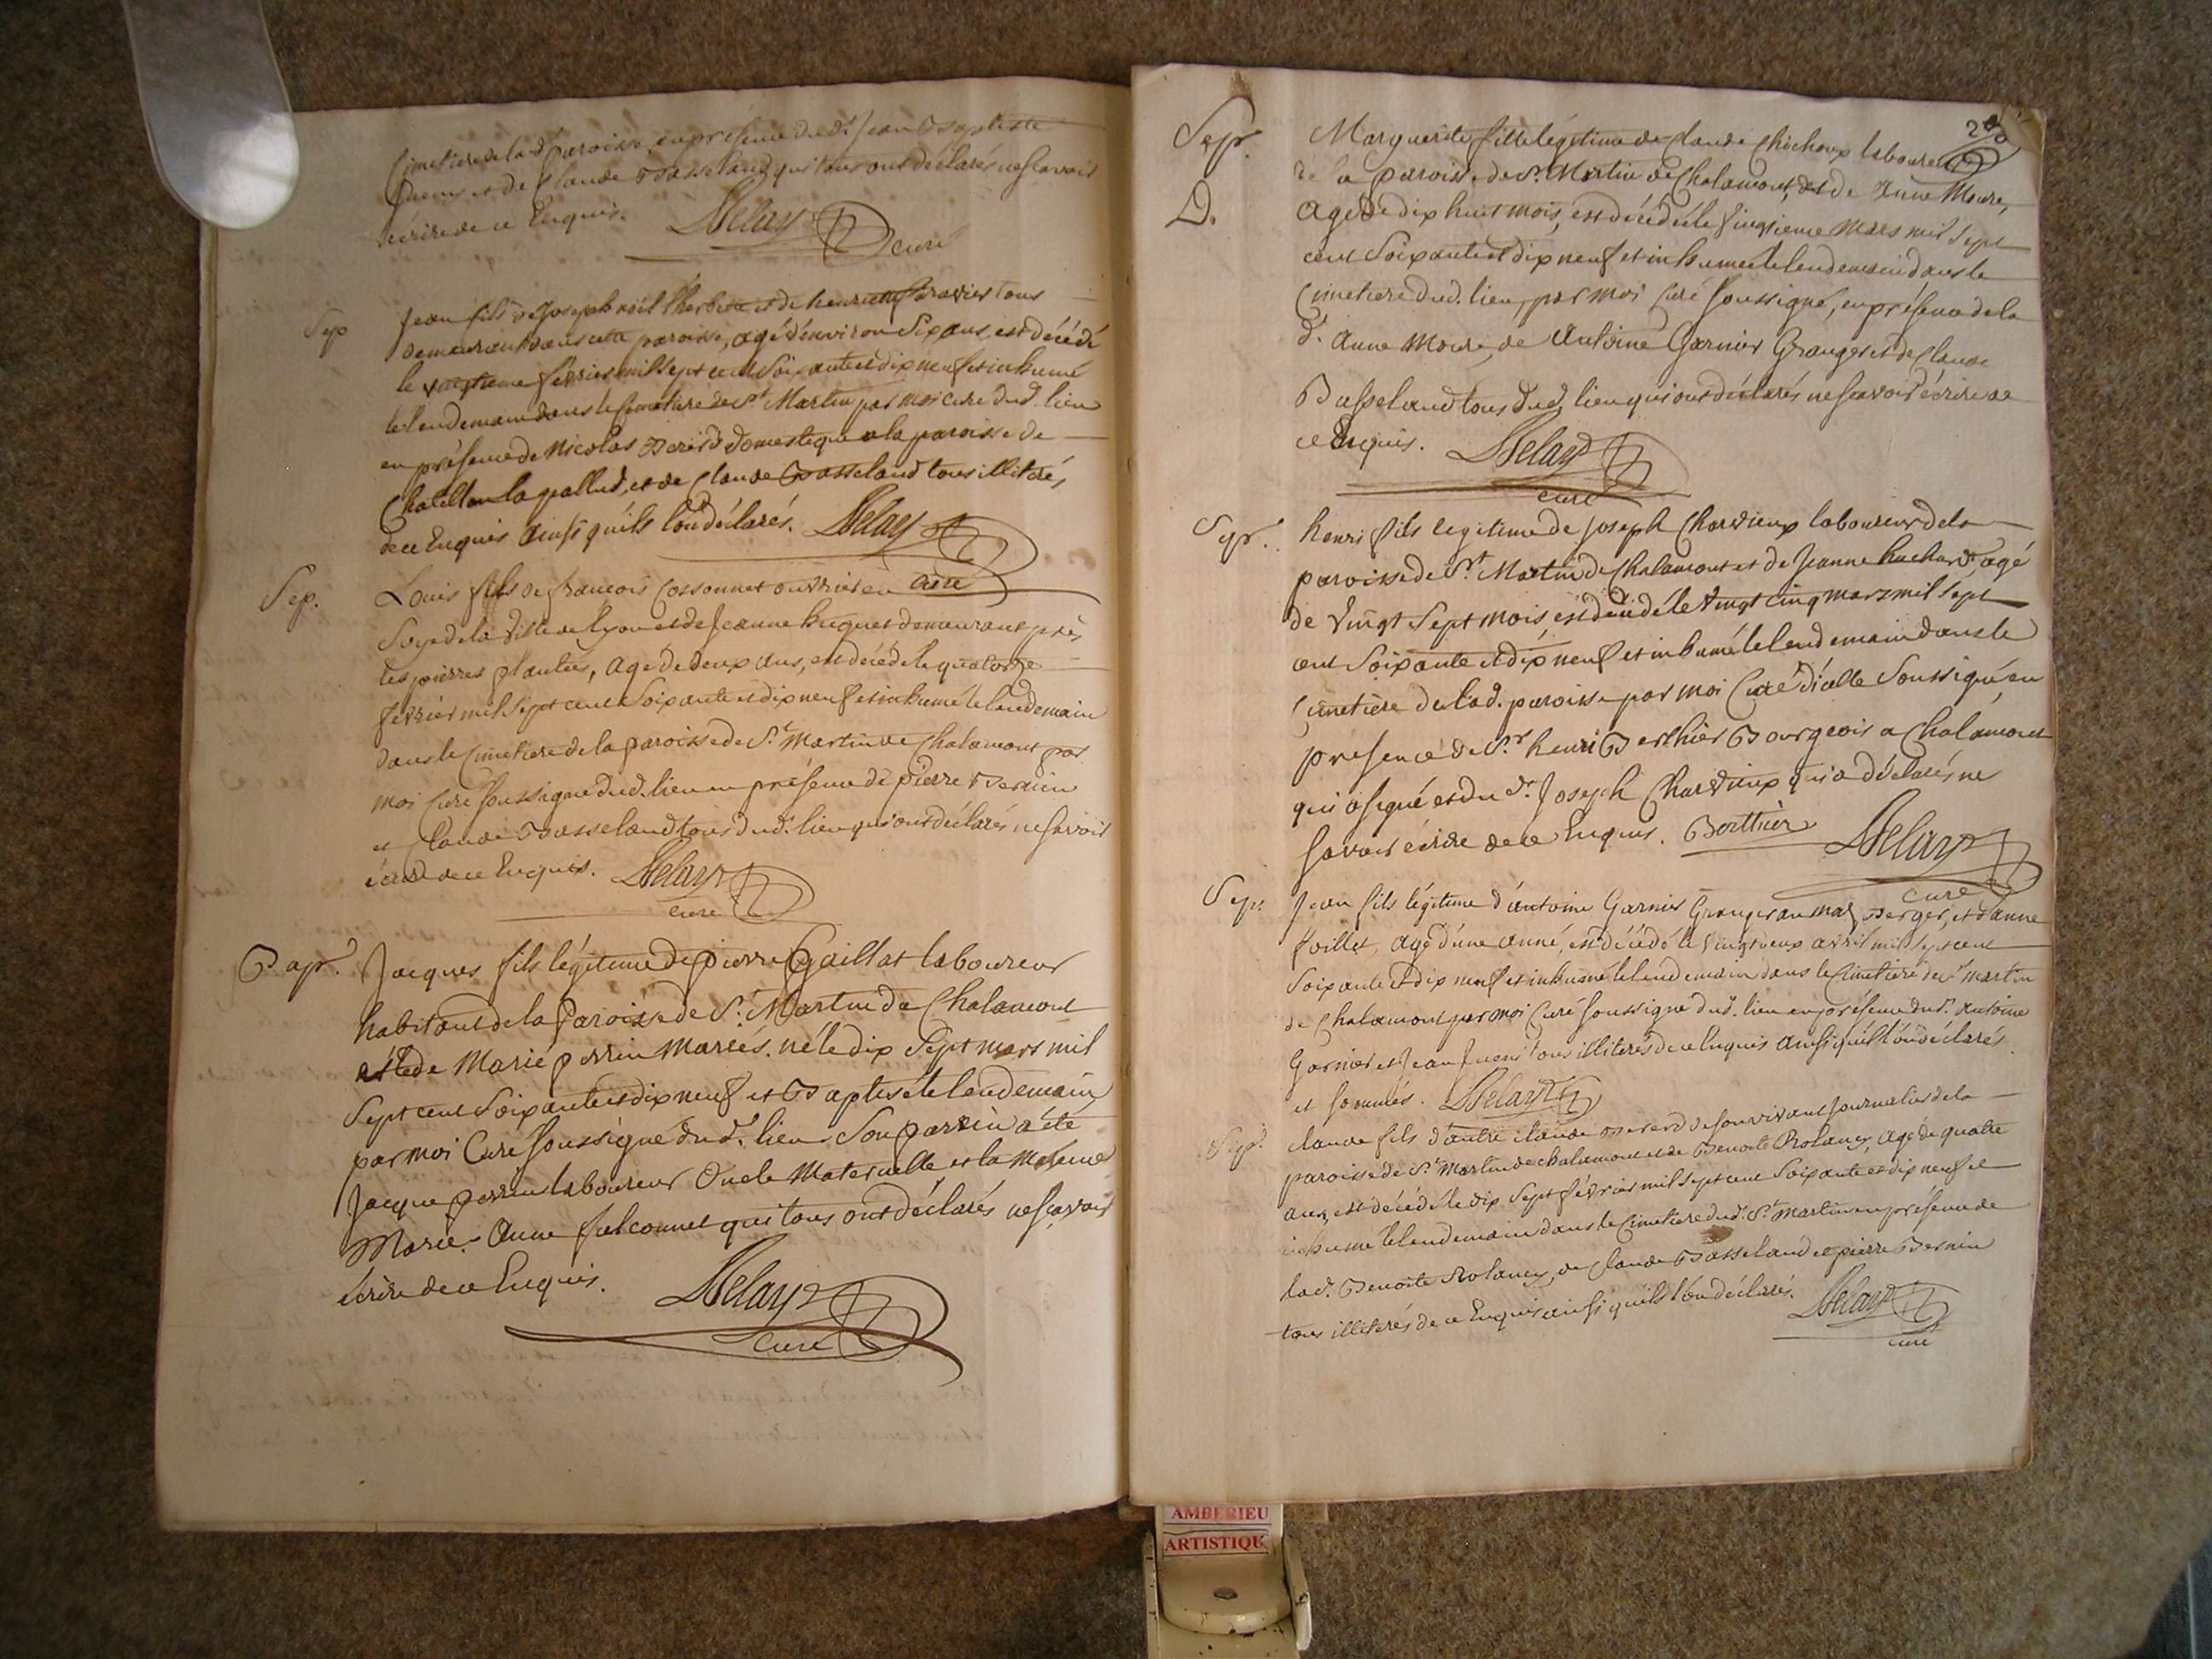 Cimetiere de la d. paroisse en présence dud. Jean Baptiste
et de Claude Basseland qui tous ont déclarés ne scavoir
écrire de ce Enquis. Delay
curé
Sep
Jean fils de Joseph noël et de henriette Bravier tous
demeurant dans cette paroisse, agé d'environ Six ans, est décédé
le vingtieme février mil sept cent Soixante et dix neuf et inhumé
le lendemain dans le Cimetiere de St. Martin par moi curé dud. lien
en présence de Nicolas domestique a la paroisse de
Chatillon la palud, et de Claude Basseland tous illiterés
de ce Enquis Ainsi quils l'on déclarés. Delay
curé
Sep.
Louis fils de francois Cossonnet ouvrier en
Soye de la Ville de lyon et de Jeanne huguet demeurant près
les pierres plantées, agé de deux ans, est décédé le quatorze
février mil Sept cent Soixante et dix neuf et inhumé le lendemain
dans le Cimetiere de la paroisse de St. Martin de Chalamont par
moi Curé Soussigné dud. lieu en présence de pierre Bernin
et Claude Basseland tous dud. lieu qui ont déclarés ne savoir
écrire de ce Enquis. Delay
curé
Bap.
Jacques fils légitime de pierre Gaillat laboureur
habitant de la Paroisse de St. Martin de Chalamont
et de Marie perrin mariés. né le dix Sept mars mil
Sept cent Soixante et dix neuf et Baptisé le lendemain
par moi Curé Soussigné dud. lieu Son parrin a été
Jacque perrin laboureur Oncle Maternelle et la Mareine
Marie-Anne falconnet qui tous ont déclarés ne scavoir
écrire de ce Enquis.
Delay
curé
Sep.
D.
Marguerite fille légitime de Claude Chichoux laboureur
de la paroisse de St. Martin de Chalamont, et de Anne Moure,
Agé de dix huit mois, est décédée le Vingtieme Mars mil Sept
cent Soixante et dix neuf et inhumée le lendemain dans le
Cimetiere dud. lieu, par moi Curé Soussigné, en présence de la
d. Anne Moure, de Antoine Garnier Granger et de Claude
Basseland tous dud. lieu qui ont déclarés ne scavoir écrire de
ce Enquis. Delay
curé
Sep.
henri fils legitime de Joseph Charvieux laboureur de la
paroisse de St. Martin de Chalamont et de Jeanne huchard, agé
de Vingt Sept mois, est décédé le Vingt cinq mars mil Sept
cent Soixante et dix neuf et inhumé le lendemain dans le
Cimetiere de lad. paroisse par moi Curé d'icelle Soussigné, en
présence de Sr. henri Berthier Bourgeois a Chalamont
qui a signé et du d. Joseph Charvieux qui a déclarés ne
savoir écrire de ce Enquis. Berthier Delay
curé
Sep.
Jean fils légitime d'antoine Garnier Granger au mas Berger, et d'anne
foillet, agé d'une anné, est décédé le Vingt deux avril mil Sept cent
Soixante et dix neuf et inhumé le lendemain dans le Cimetiere de St. martin
de Chalamont par moi Curé Soussigné dud. lieu en présence dud. Antoine
Garnier et Jean tous illiterés de ce Enquis Ainsi quil l'on déclarés
et Sommés. Delay
Sep.
Claude fils d'autre Claude de son vivant Journalier de la
paroisse de St. Martin de Chalamont et de Benoite Rolancy, agé de quatre
ans, est décédé le dix Sept février mil Sept cent Soixante et dix neuf et
inhumé le lendemain dans le Cimetiere dud. St. Martin en présence de
lad. Benoite Rolancy, de Claude Basseland et pierre Bernin
tous illiterés de ce Enquis ainsi quils l'on déclarés. Delay
curé
AMBERIEU
ARTISTIQU